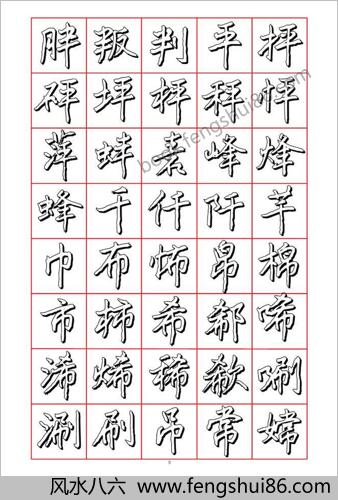 胖叛判平抨
砰坪枰秤怦
萍蚌素峰烽
蜂千仟阡芊
巾布饰帛棉
市柿希郗唏
浠烯稀欷唰
涮刷吊常嫦
book.fengshui86.com
8
风水八六 www.fengshui86.com